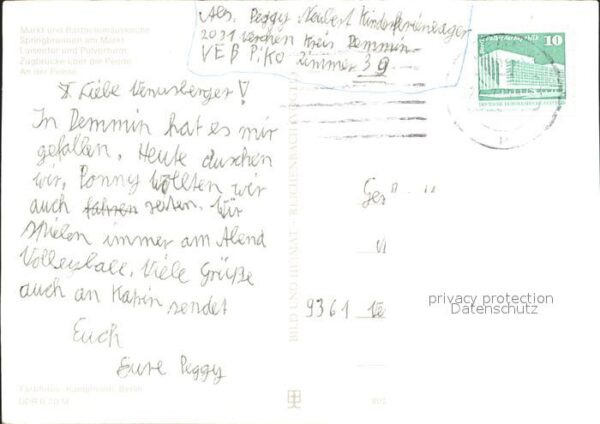 Markt und Bartholomäuskirche
Springbrunnen am Markt
Luisentor und Pulverturm
Zugbrücke über die Peene
An der Peene
Abs. Peggy Neubert Kinderferienlager
2031 Verchen Kreis Demmin
VEB PiKO Zimmer 39
DEUTSCHE DEMOKRATISCHE REPUBLIK
10
Liebe Venusberger!
In Demmin hat es mir
gefallen. Heute duschen
wir, Ponny wollten wir
auch fahren reiten. Wir
spielen immer am Abend
Volleyball. Viele Grüße
auch an Karin sendet
Euch
Eure Peggy
BILD UND HEIMAT REICHENBACH
9361
privacy protection
Datenschutz
Berlin
DDR 0,20 M